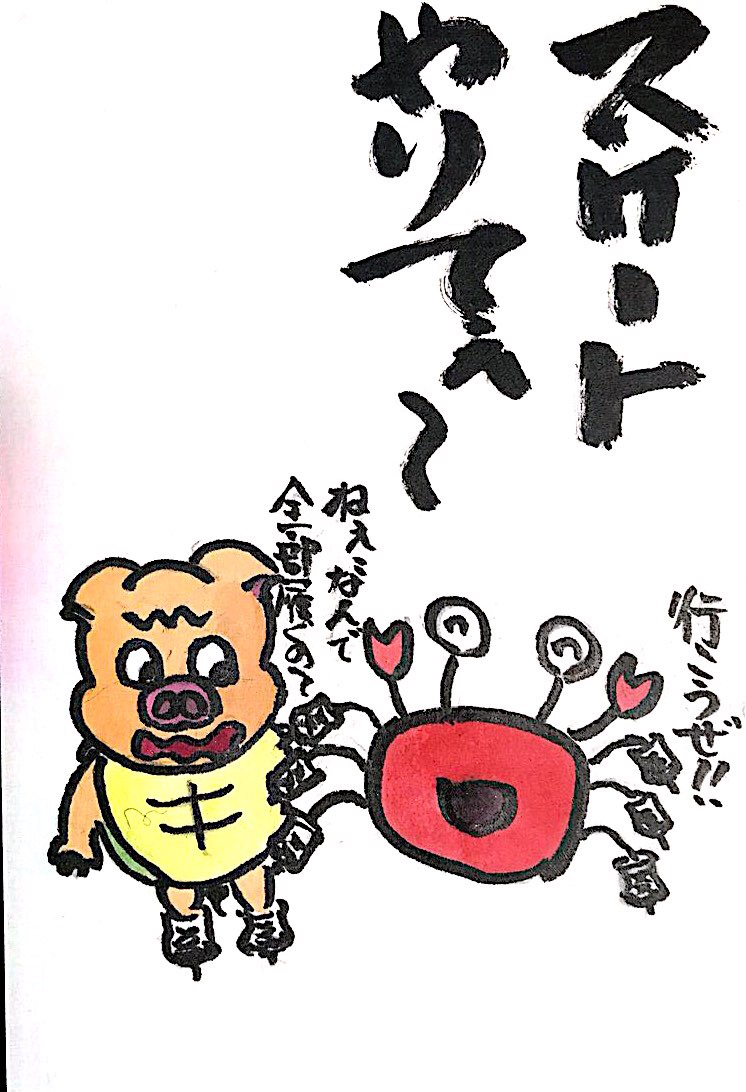 スケート
やりてぇ〜
行こうぜ!!
ねぇなんで
全部履くの?
キ